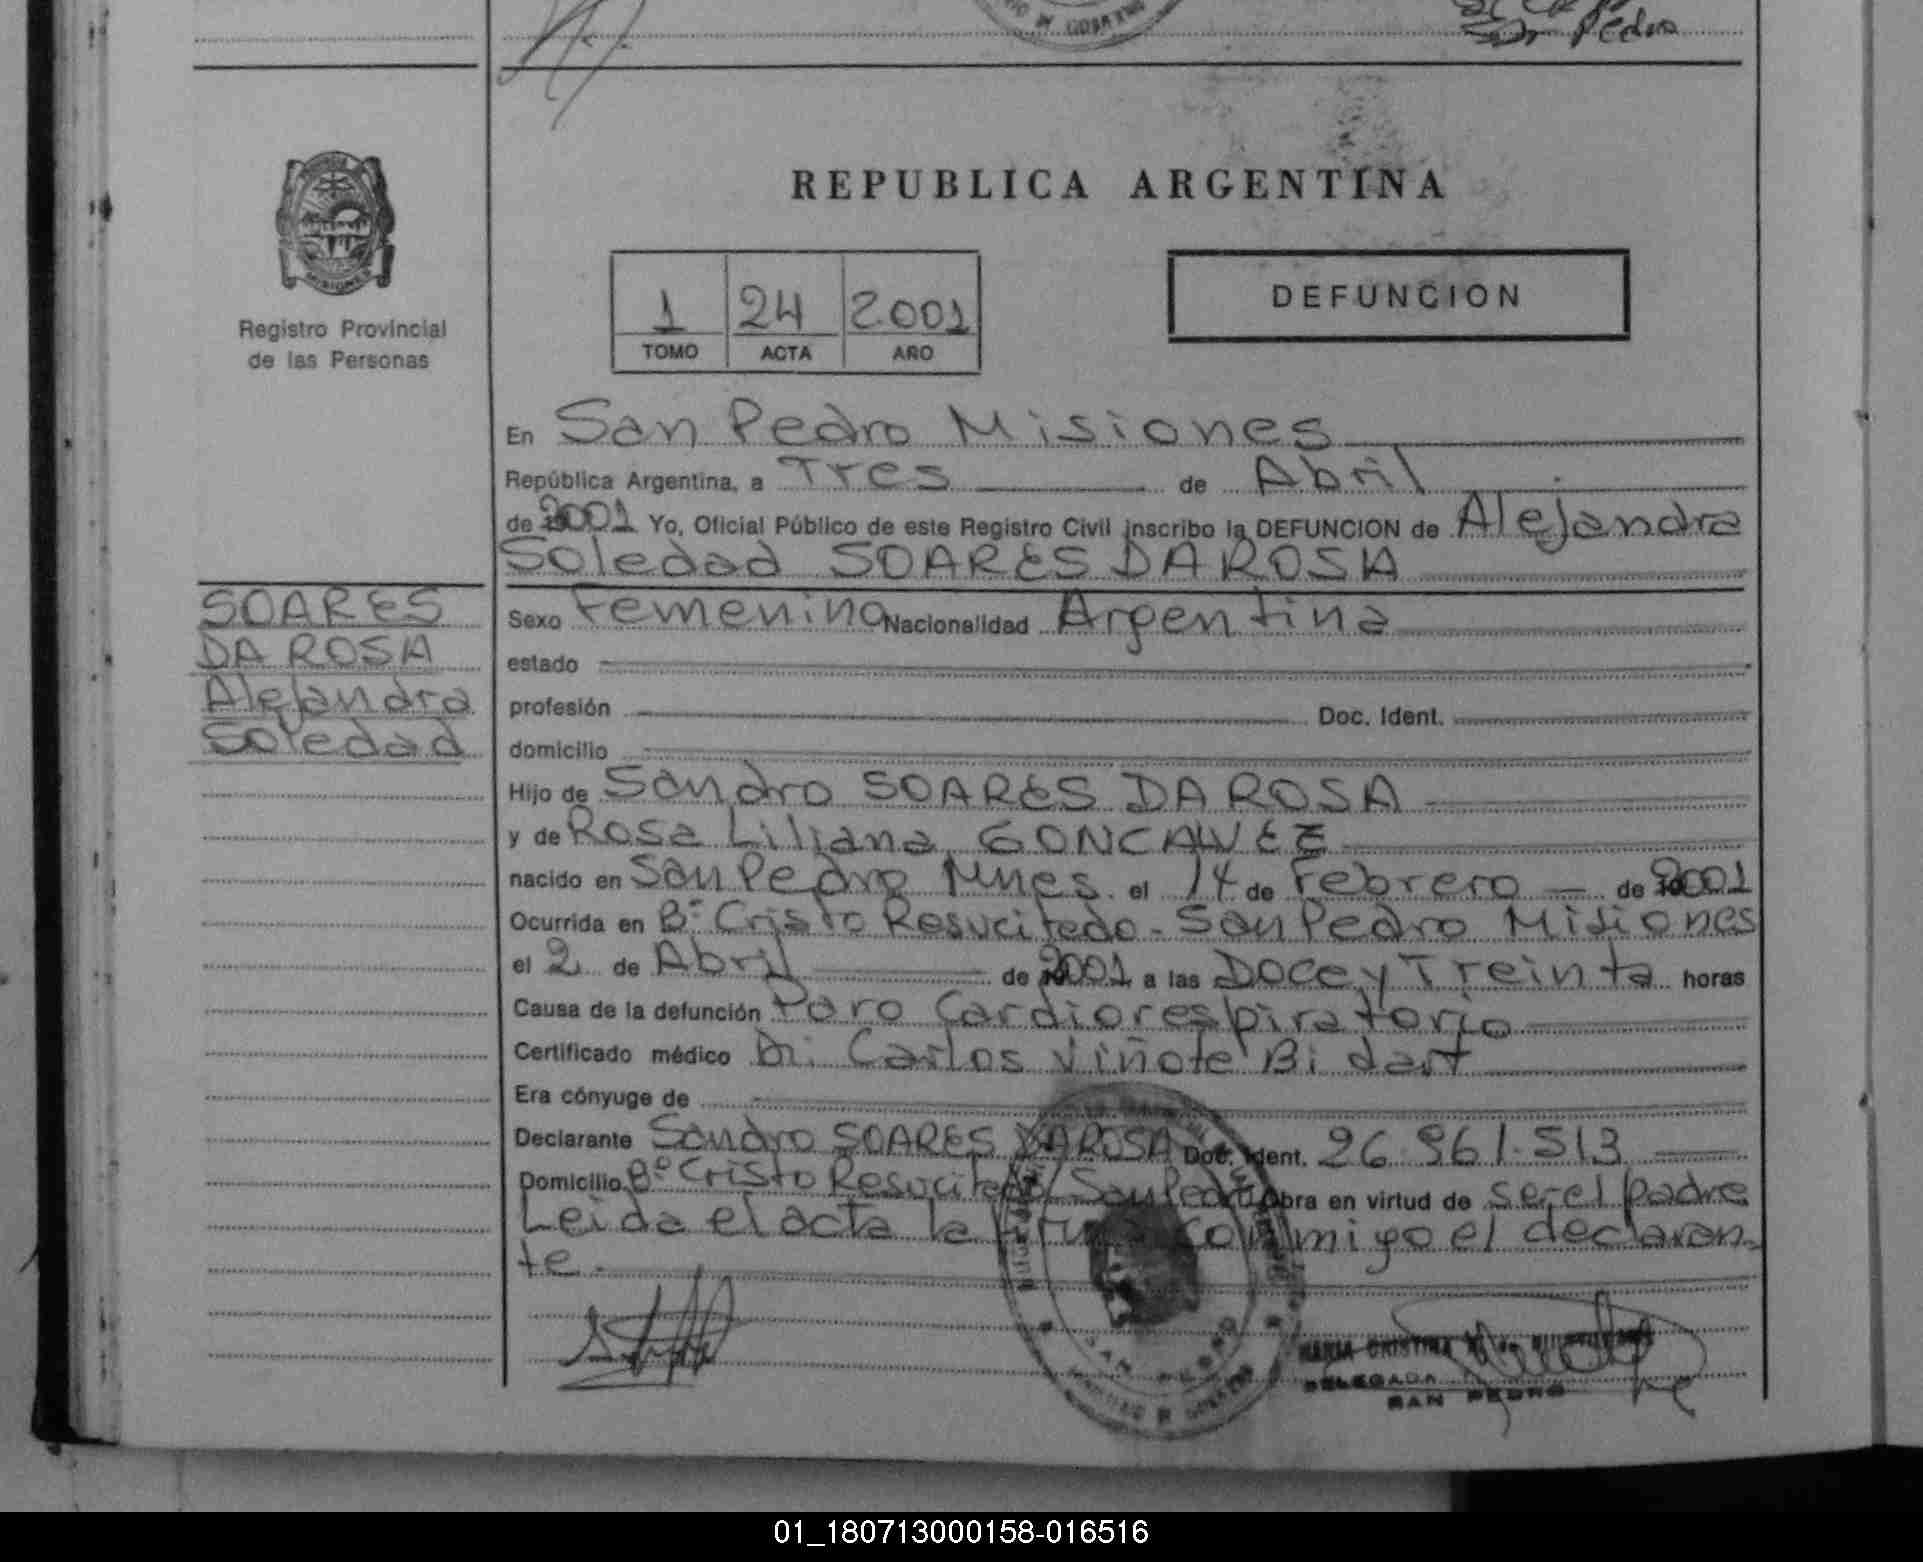 Pedro
REPUBLICA ARGENTINA
Registro Provincial
de las Personas
1 24 2001
TOMO ACTA AÑO
DEFUNCION
En San Pedro Misiones
República Argentina, a Tres de Abril
de 2001 Yo, Oficial Público de este Registro Civil inscribo la DEFUNCION de Alejandra
Soledad SOARES DA ROSA
SOARES
DA ROSA
Alejandra
Soledad
Sexo Femenino Nacionalidad Argentina
estado
profesión Doc. Ident.
domicilio
Hijo de Sandro SOARES DA ROSA
y de Rosa Liliana GONCALVEZ
nacido en San Pedro Mnes. el 14 de Febrero de 2001
Ocurrida en Bº Cristo Resucitado - San Pedro Misiones
el 2 de Abril de 2001 a las Doce y Treinta horas
Causa de la defunción Paro Cardiorespiratorio
Certificado médico Dr. Carlos Viñote Bidart
Era cónyuge de
Declarante Sandro SOARES DA ROSA Doc. Ident. 26.961.513
Domicilio Bº Cristo Resucitado / San Pedro Obra en virtud de ser el padre
Leida el acta la firma conmigo el declaran-
te.
MARIA CRISTINA
DELEGADA
SAN PEDRO
SAN PEDRO
01_180713000158-016516